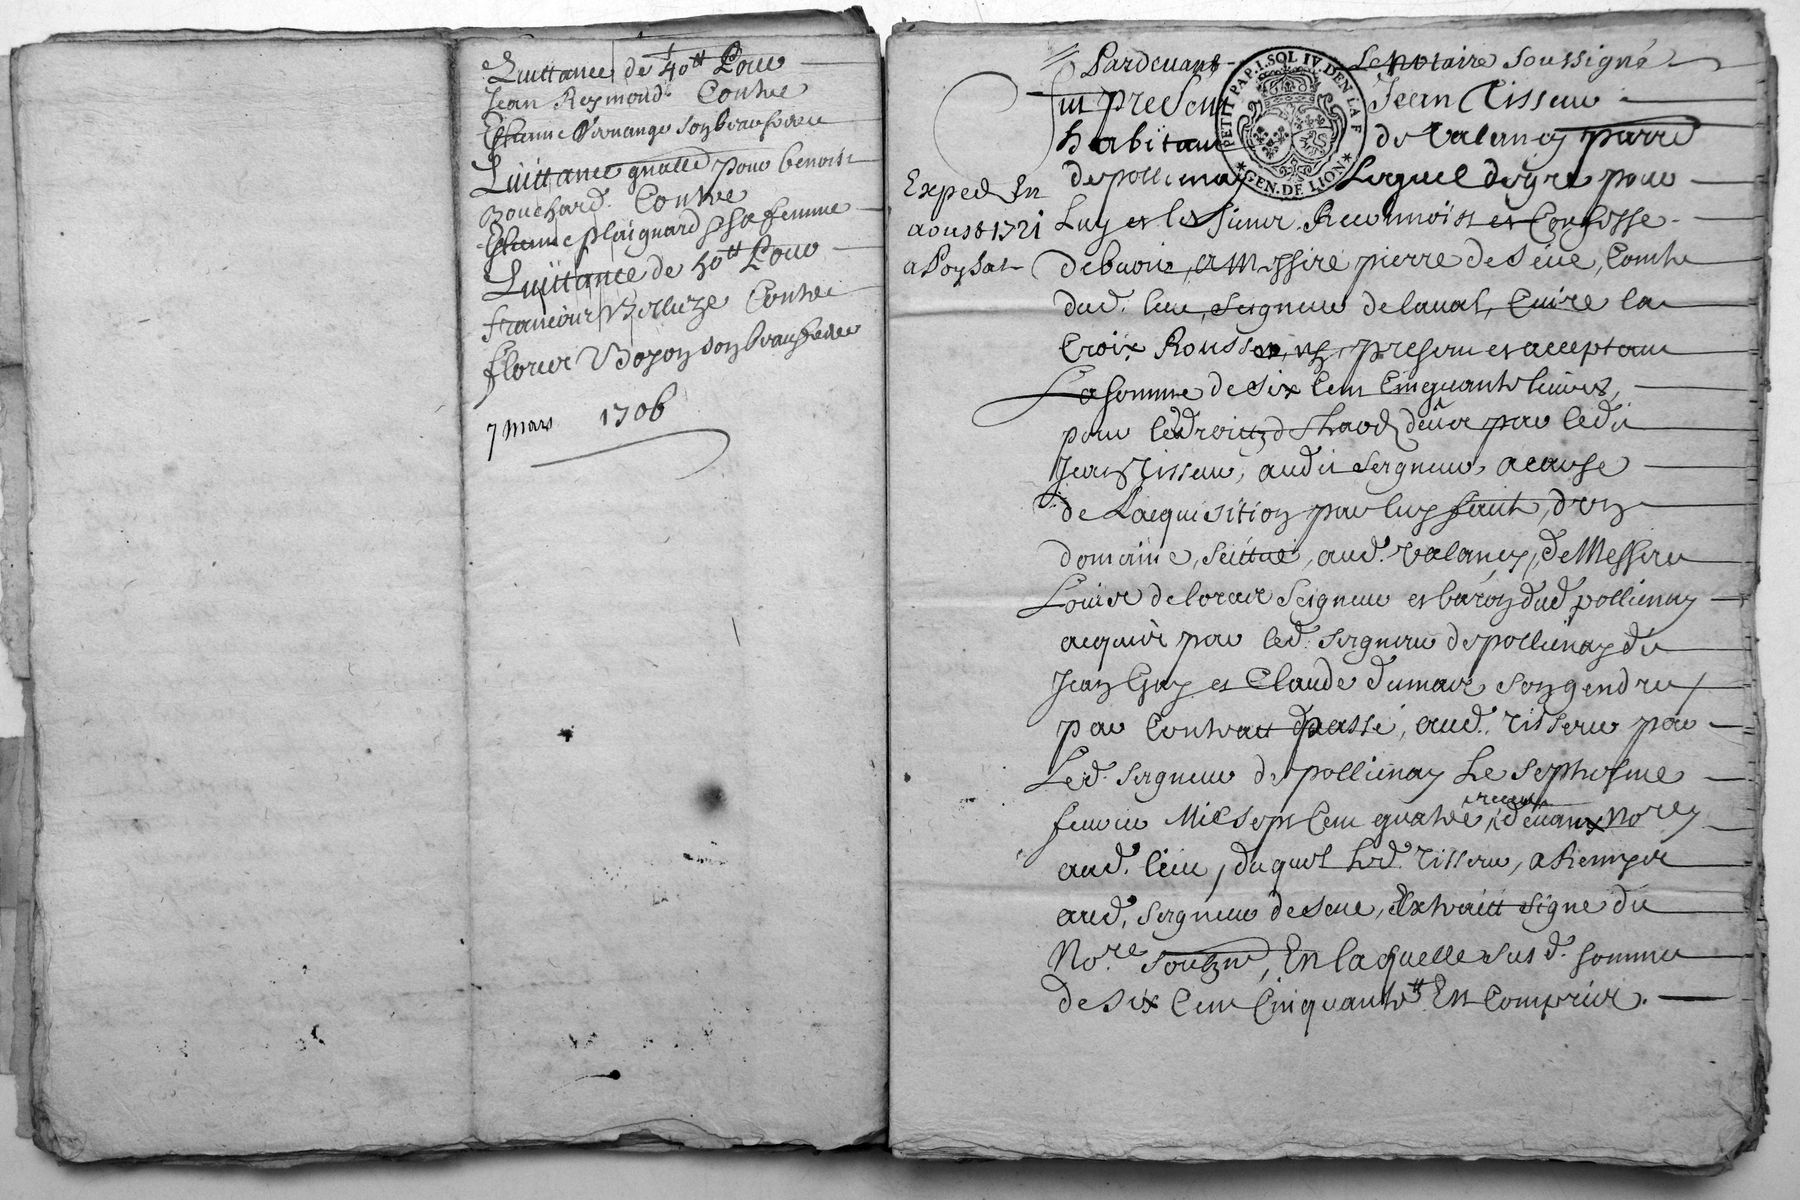 Quittance de 40tt Pour
Jean Reymond Contre
Estienne son beaufrere
Quittance gnalle pour benoist
Bouchard Contre
Estienne plaignard & sa femme
Quittance de 50tt Pour
francois Contre
florie son beaufrere
7 mars 1706
Pardevant Le notaire soussigné
fut present Jean Tisseur
habitant de Valancy parre
de pollienay Lequel de gre pour
Exped. En
aoust 1721
a Loysat
Luy et les siens Reconnoist et Confesse
debuoir, a Messire pierre de Seue, Comte
dud. lieu, seigneur de laual, Cuire la
Croix Rousse, present et acceptant
La somme de six Cent Cinquante liures,
pour led droitz deus par ledit
Jean Tisseur, audit seigneur, a cause
de Lacquisition par luy faict, d'un
domaine, scittué, aud. Valancy, de Messire
Louis de lorar Seigneur et baron dud pollienay
acquis par led. seigneur de pollienay de
Jean Gay et Claude dumas son gendre
par Contract passé, aud. Tisseur par
Led. seigneur de pollienay Le septiesme
feurier Mil sept Cent quatre, receu deuant No.re
aud. lieu, duquel led. Tisseur, a Remis
aud. seigneur de Seue, Extraict signé du
No.re soubzne, En laquelle sus d. somme
de six Cent Cinquante tt. Est Compris.
PETIT PAP. 1. SOL IV DEN LA F
GEN. DE LION